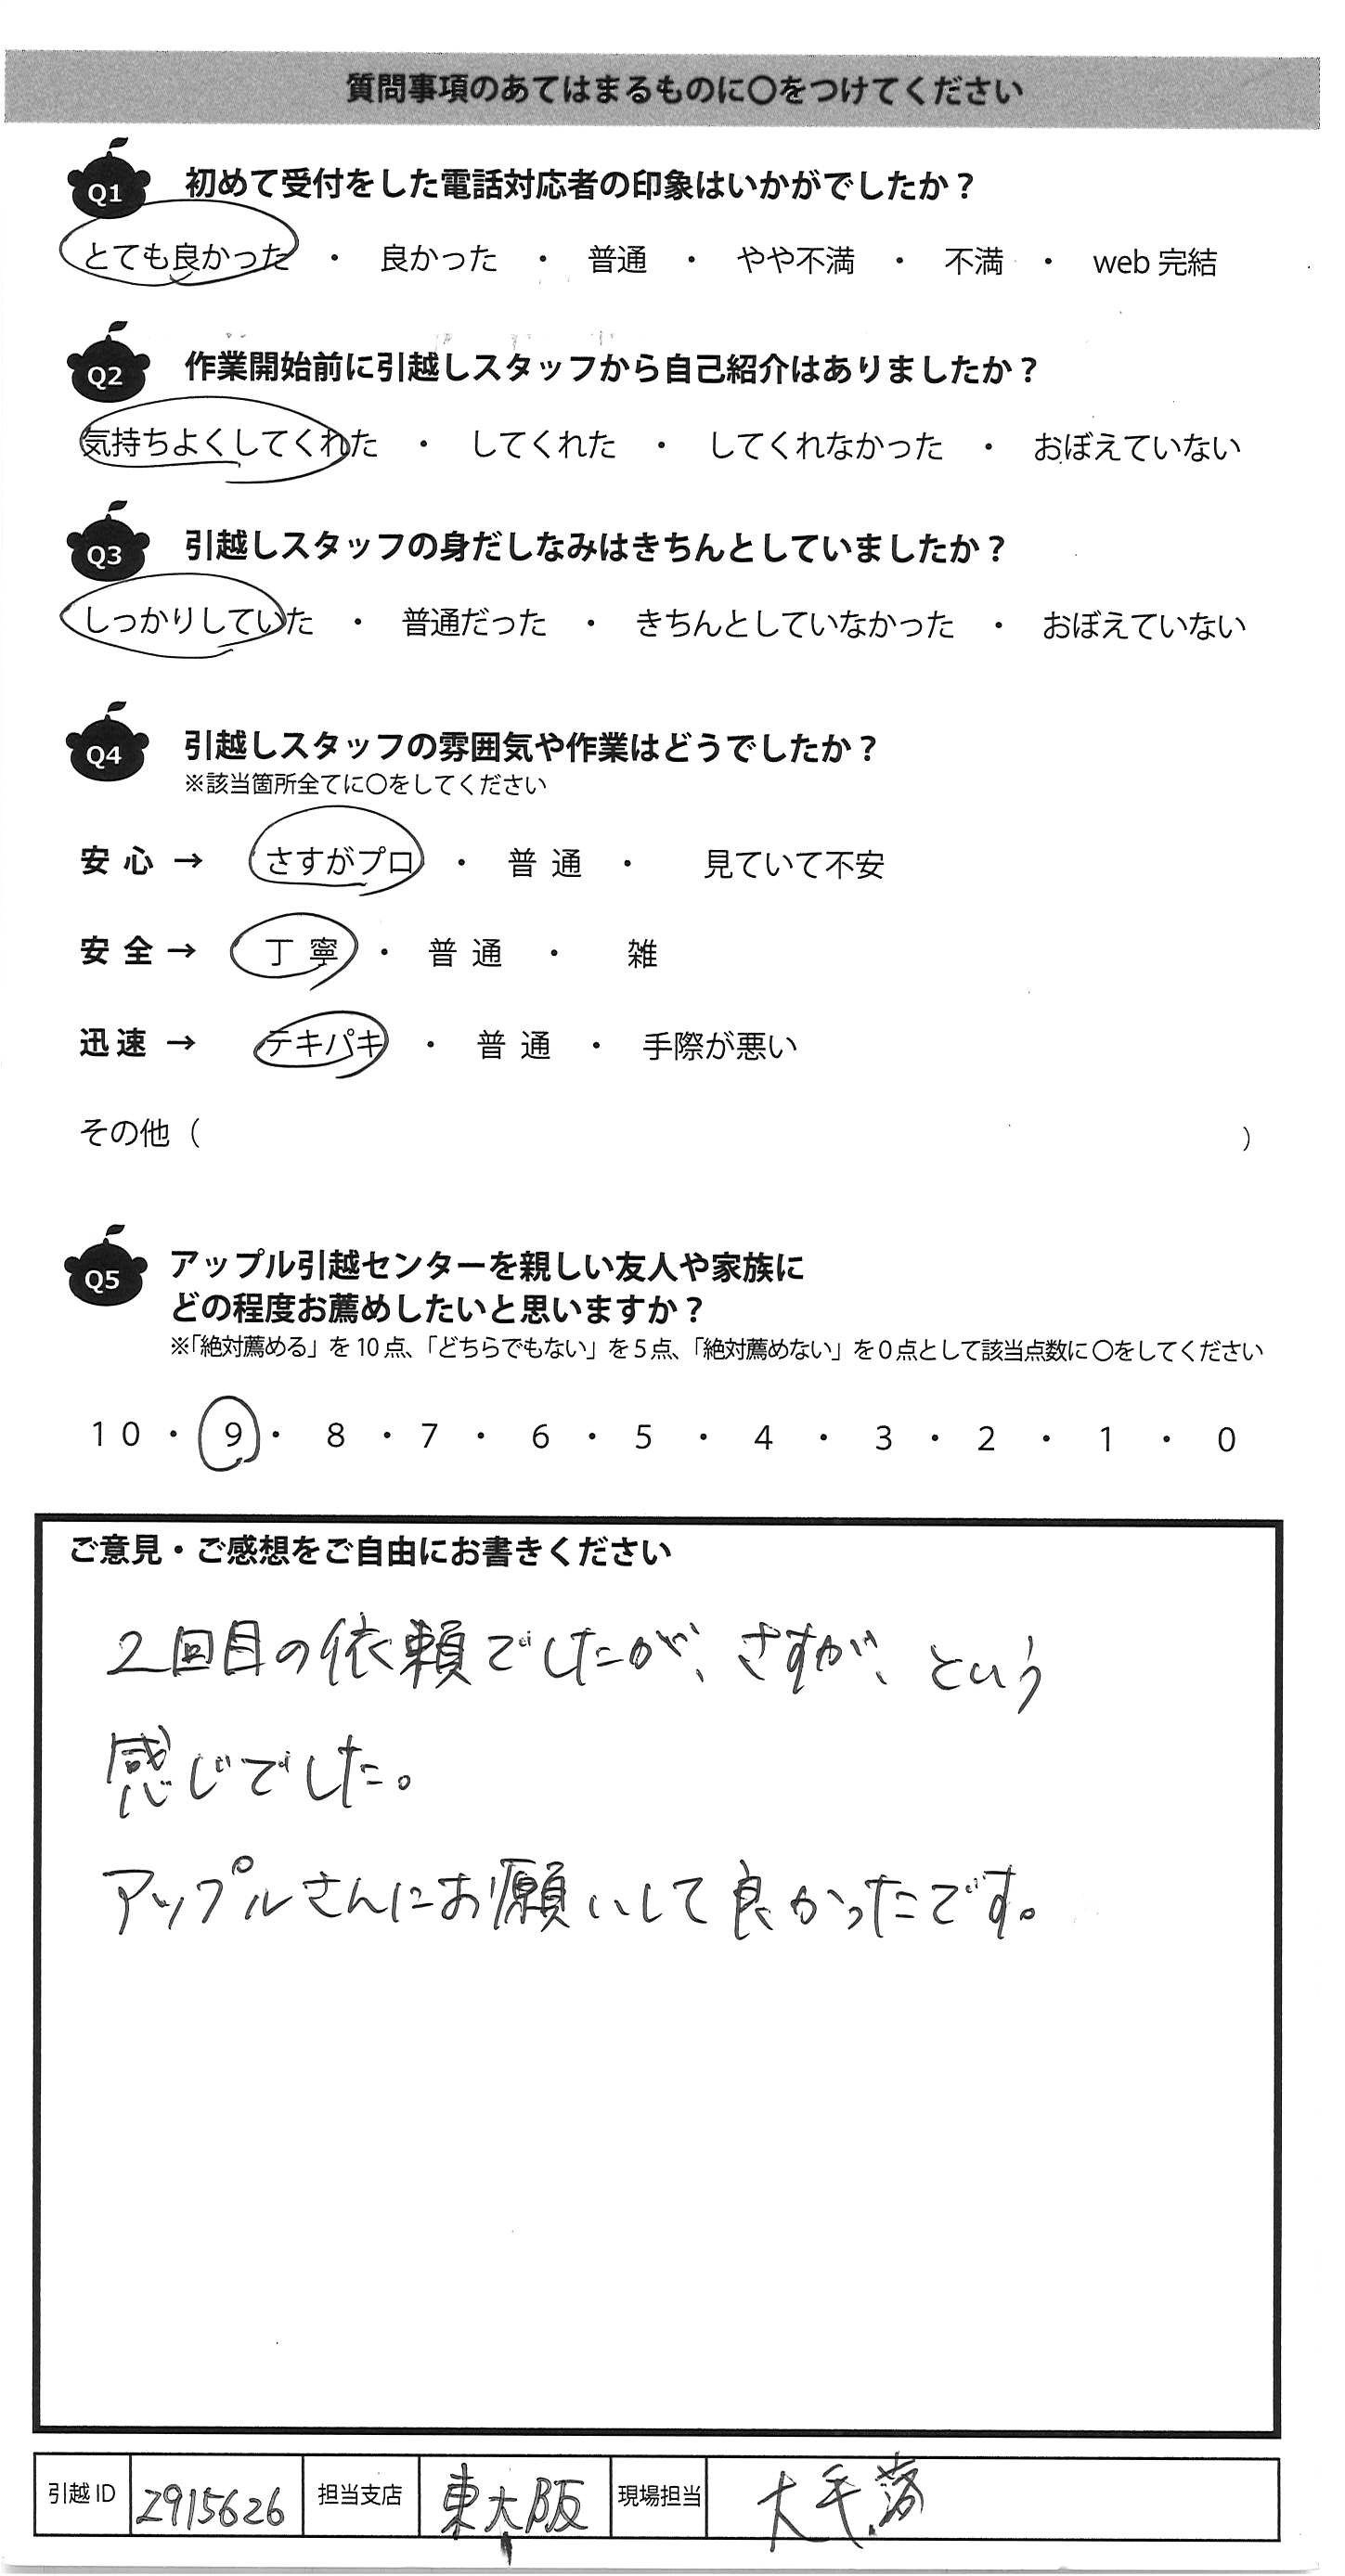 質問事項のあてはまるものに〇をつけてください
Q1 初めて受付をした電話対応者の印象はいかがでしたか？
とても良かった ・ 良かった ・ 普通 ・ やや不満 ・ 不満 ・ web 完結
Q2 作業開始前に引越しスタッフから自己紹介はありましたか？
気持ちよくしてくれた ・ してくれた ・ してくれなかった ・ おぼえていない
Q3 引越しスタッフの身だしなみはきちんとしていましたか？
しっかりしていた ・ 普通だった ・ きちんとしていなかった ・ おぼえていない
Q4 引越しスタッフの雰囲気や作業はどうでしたか？
※該当箇所全てに〇をしてください
安心 → さすがプロ ・ 普通 ・ 見ていて不安
安全 → 丁寧 ・ 普通 ・ 雑
迅速 → テキパキ ・ 普通 ・ 手際が悪い
その他（ ）
Q5 アップル引越センターを親しい友人や家族に
どの程度お薦めしたいと思いますか？
※「絶対薦める」を 10 点、「どちらでもない」を 5 点、「絶対薦めない」を 0 点として該当点数に〇をしてください
10 ・ 9 ・ 8 ・ 7 ・ 6 ・ 5 ・ 4 ・ 3 ・ 2 ・ 1 ・ 0
ご意見・ご感想をご自由にお書きください
2回目の依頼でしたが、さすが、という
感じでした。
アップルさんにお願いして良かったです。
引越 ID 2915626 担当支店 東大阪 現場担当